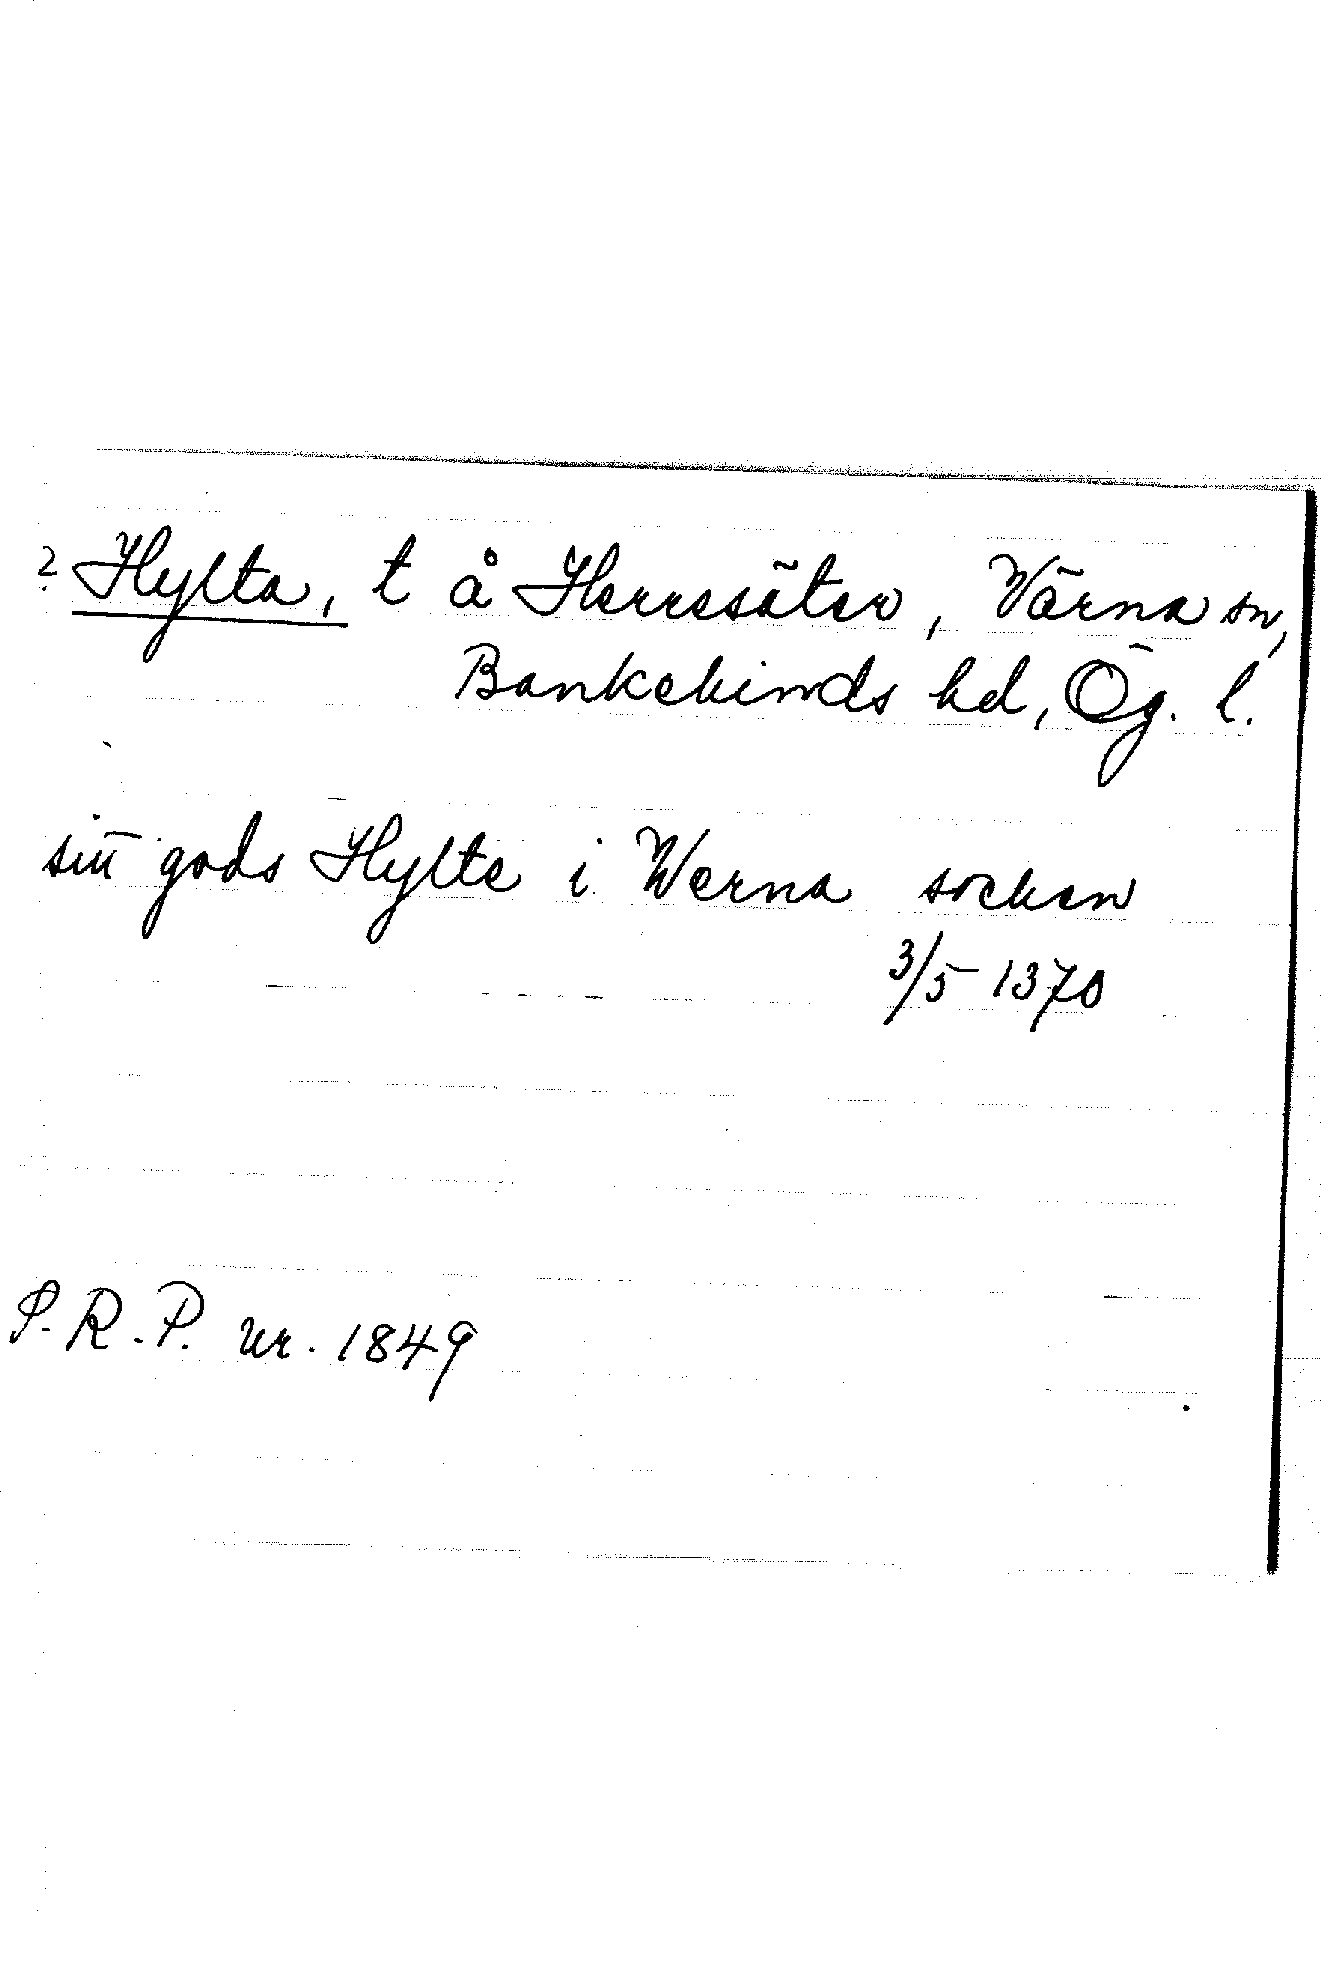 ? Hylta, t å Herresäter, Värna sn,
Bankekinds hd, Ög. l.
sitt gods Hylte i Werna socken
3/5 1370
S.R.P. nr. 1849